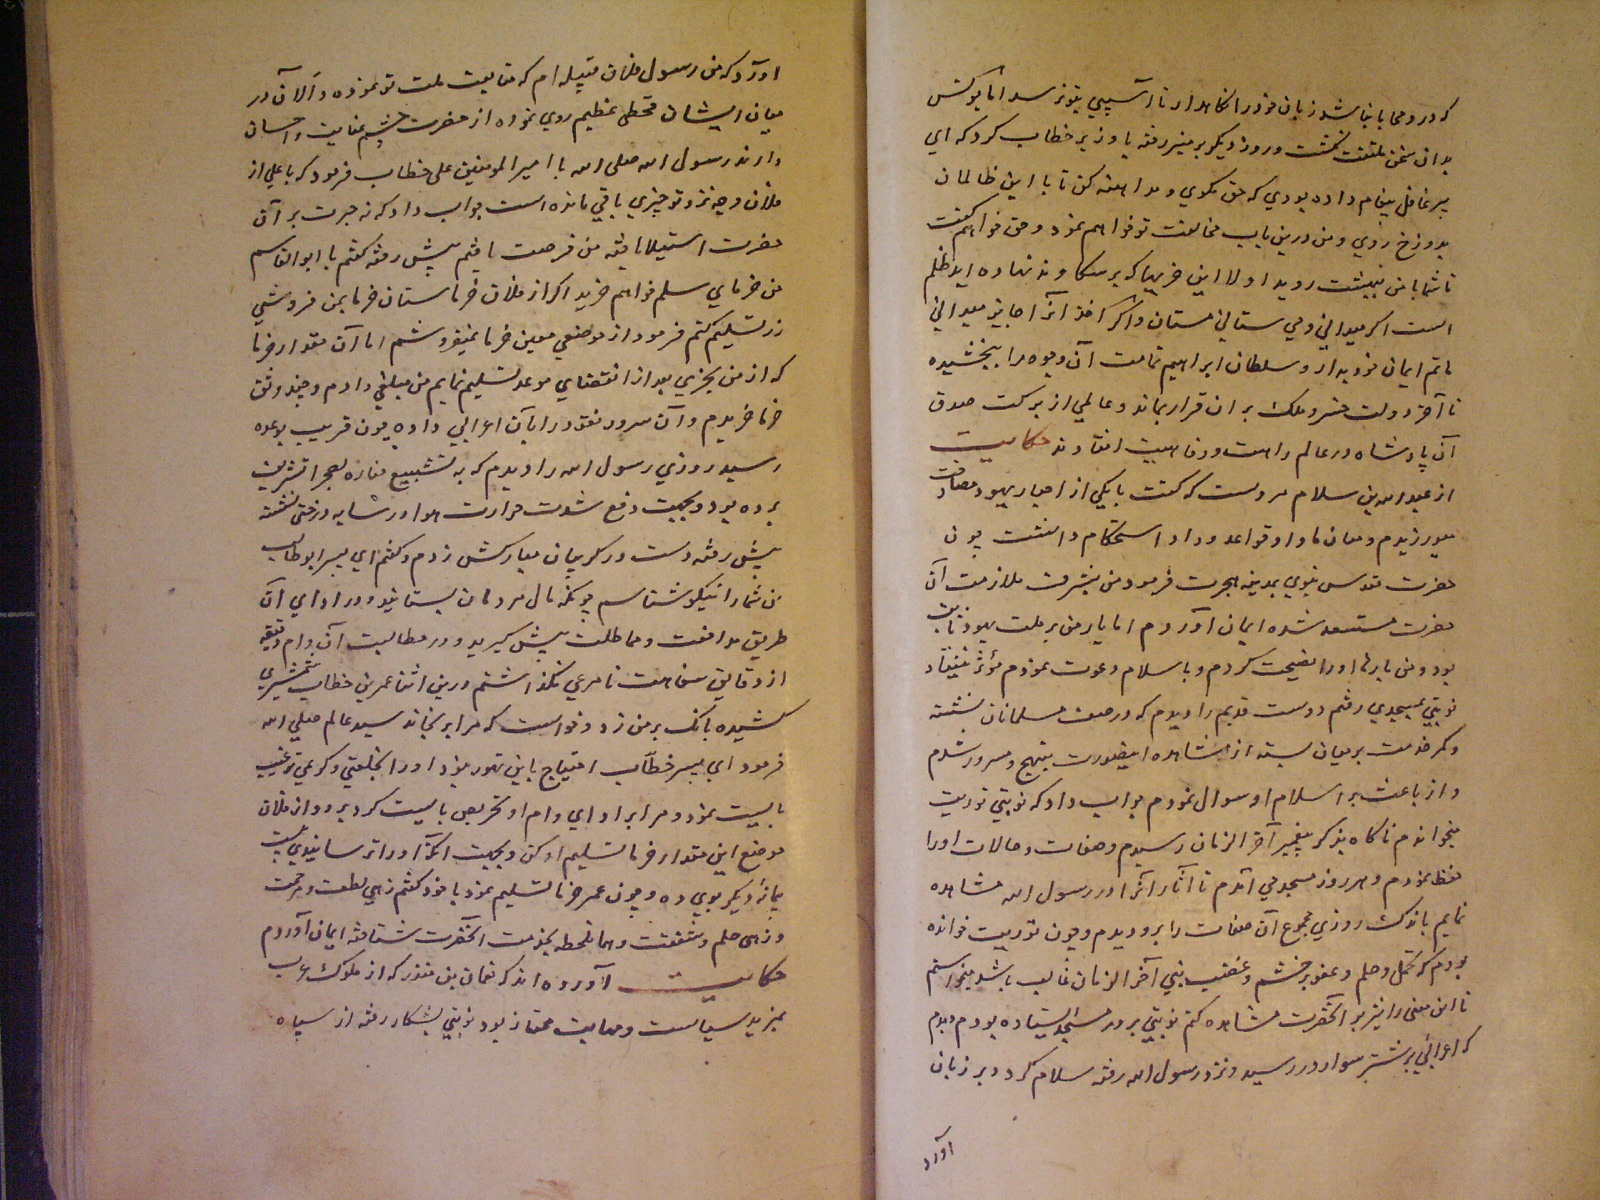 که در و محابا نباشد زبان خود را نگاهدار تا آسیبی بتو نرسد اما یوکتس
بدان سخن ملتفت نگشت و روز دیگر بر منبر رفته با وزیر خطاب کرد که ای
بیر غافل پیغام داده بودی که حق نگوی و مداهنه کن تا با این ظالمان
بدوزخ روی و من درین باب مخالفت تو خواهم نمود و حق خواهم گفت
تا شما با من ببهشت روید اولا این خربها که بر سکاوند نهاده اید ظلم
است اگر میدانی و می ستانی مستان و اگر اخذ آنرا جایز میدانی
ماتم ایمان خود بدار و سلطان ابراهیم تمامت آن وجوه را ببخشیده
تا آخر دولت خسرو ملک بر آن قرار بماند و عالمی از برکت صدق
آن پادشاه در عالم راحت و رفاهیت افتادند حکایت
از عبد الله بن سلام مرویست که گفت با یکی از احبار یهود مصادقت
میورزیدم و میان ما و او قواعد وداد استحکام داشت چون
حضرت مقدس نبوی بمدینه هجرت فرمود من بشرف ملازمت آن
حضرت مستسعد شده ایمان آوردم اما یار من بر ملت یهود ثابت
بود و من بارها او را نصیحت کردم و باسلام دعوت نمودم مؤثر نیفتاد
نوبتی بمسجدی رفتم دوست قدیم را دیدم که در صف مسلمانان نشسته
و کمر خدمت بر میان بسته از مشاهده اینصورت مبتهج و مسرور شدم
و از باعث بر اسلام او سوال نمودم جواب داد که نوبتی توریت
میخواندم ناگاه بذکر پیغمبر آخر الزمان رسیدم و صفات و حالات او را
حفظ نمودم و هر روز مسجد می آمدم تا آثار آنرا در رسول الله مشاهده
نمایم باندک روزی مجموع آن صفات را برو دیدم و چون توریت خوانده
بودم که تحمل و حلم و عفو بر خشم و غضب نبی آخر الزمان غالب باشد میخواستم
تا این معنی را نیز بر آنحضرت مشاهده کنم نوبتی بر در مسجد ایستاده بودم دیدم
که اعرابی بر شتر سوار در رسید و نزد رسول الله رفته سلام کرد و بر زبان
آورد
آورد که من رسول فلان قبیله ام که متابعت ملت تو نموده و الآن در
میان ایشان قحطی عظیم روی نموده از حضرت چشم عنایت و احسان
دارند رسول الله صلی الله با امیر المومنین علی خطاب فرمود که یا علی از
فلان وجه نزد تو چیزی باقی مانده است جواب داد که نه حیرت بر آن
حضرت استیلا یافته من فرصت یافتم پیش رفته گفتم یا ابو القاسم
من خرمای سلم خواهم خرید اگر از فلان خرماستان خرما بمن فروشی
زر تسلیم کنم فرمود از موضعی معین خرما نمیفروشم اما آن مقدار خرما
که از من بخری بعد از انقضای موعد تسلیم نمایم من مبلغی دادم و چند وسق
خرما خریدم و آن سرور نقود را بآن اعرابی داده چون قریب بوعده
رسید روزی رسول الله را دیدم که به تشییع جنازه بصحرا تشریف
برده بود و بجهت دفع شدت حرارت هوا در سایه درختی نشسته
پیش رفته دست در گریبان مبارکش زدم و گفتم ای پسر ابو طالب
من شما را نیکو شناسم چونکه مال مردمان بستانید و در ادای آن
طریق مدافعت و مماطلت پیش گیرید و در مطالبت آن وام دقیقه
از دقایق سفاهت نامرعی نگذاشتم درین اثنا عمر بن خطاب شمشیری
کشیده بانگ بر من زد و خواست که مرا برنجاند سید عالم صلی الله
فرمود ای پسر خطاب احتیاج باین تهور نبود او را بخلعتی و کرمی ترغیب
بایست نمود و مرا بر ادای وام او تحریص بایست کرد برو و از فلان
موضع این مقدار خرما تسلیم او کن و بجهت آنکه او را ترسانیدی بیست
پیمانه دیگر بوی ده و چون عمر خرما تسلیم نمود با خود گفتم زهی لطف و مرحمت
و زهی حلم و شفقت و همان لحظه بخدمت آنحضرت شتافته ایمان آوردم
حکایت آورده اند که نعمان بن منذر که از ملوک عرب
بمزید سیاست و مهابت ممتاز بود نوبتی بشکار رفته از سپاه